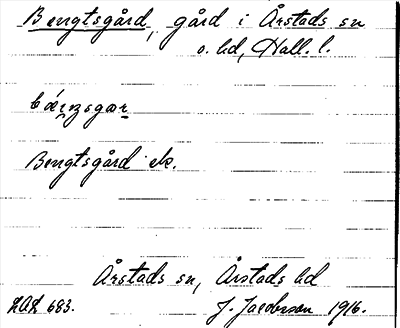 Bengtsgård, gård i Årstads sn
o. hd, Hall. l.
Bengtsgård ek.
Årstads sn, Årstads hd
LAL 683. J. Jacobsson 1916.